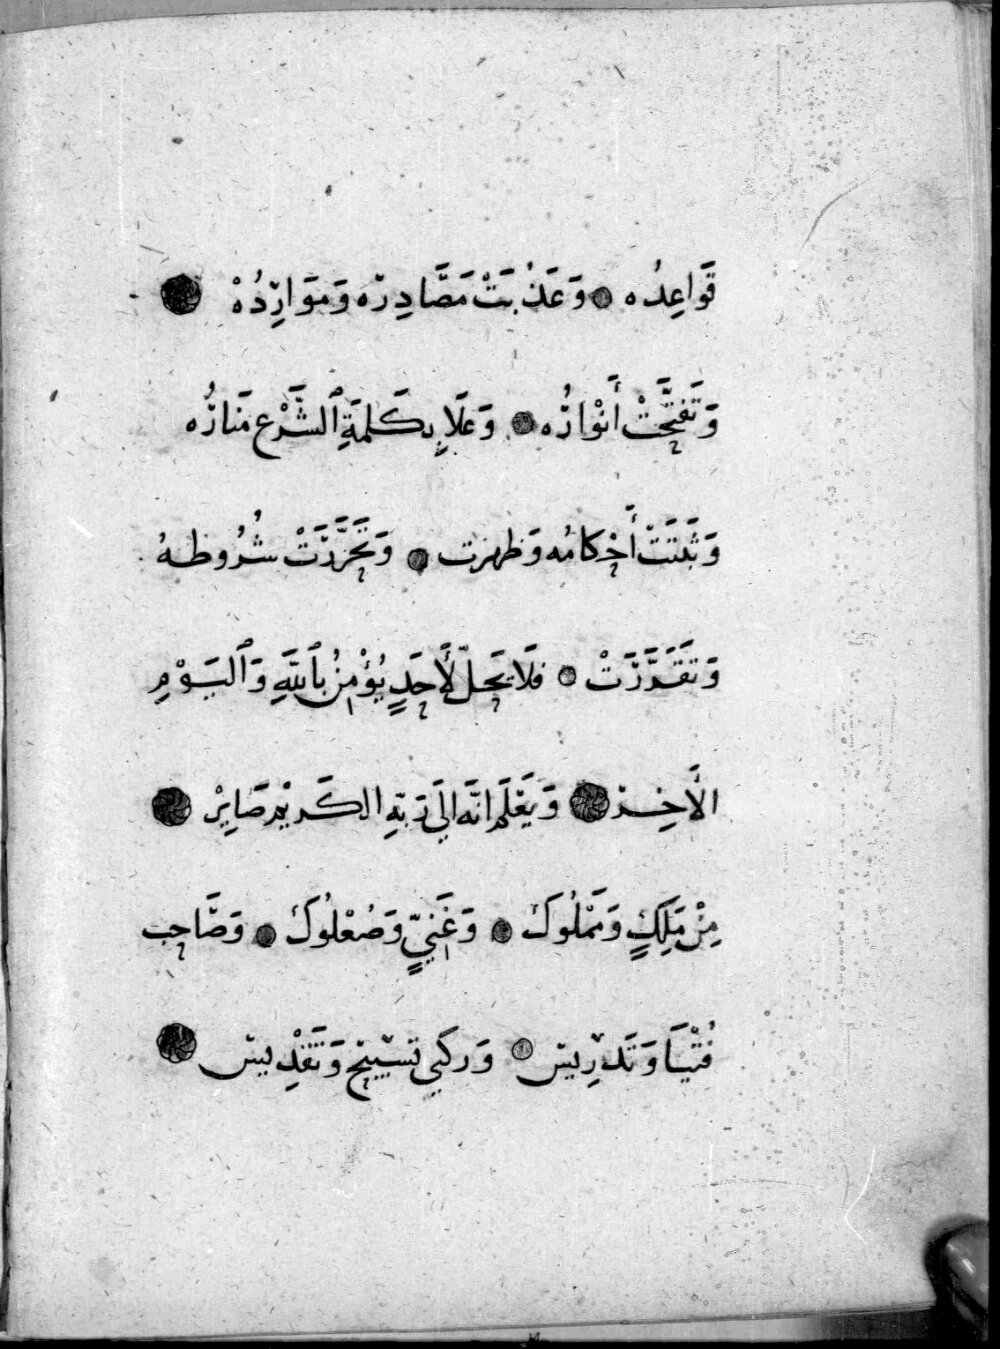 قَوَاعِدُه وَعَذُبَتْ مَصَادِرُه وَمَوَارِدُهْ
وَتَفَتَّحَتْ أَنْوَارُه وَعَلَا بِكَلِمَةِ ٱلشَّرْعِ مَنَارُه
وَثَبَتَتْ أَحْكَامُه وَظهرت وَتَحَرَّرَتْ شُرُوطهُ
وَتَقَرَّرَتْ فَلَا يَحِلّ لأَحَدٍ يُؤْمِنُ بٱللَّهِ وَٱليَوْمِ
الأَخِرْ وَيَعْلَم انَّه اِلَى رَبّهِ الكَرِيْم صَايِرْ
مِنْ مَلِكٍ وَمَمْلُوكْ وَغَنِيٍّ وَصُعْلُوكْ وَصَاحِب
فُتْيَا وَتَدْرِيس وَرَكبي تسْبِيح وَتَقْدِيس